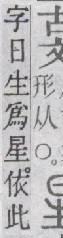 古文形从○。
字日生爲星。依此